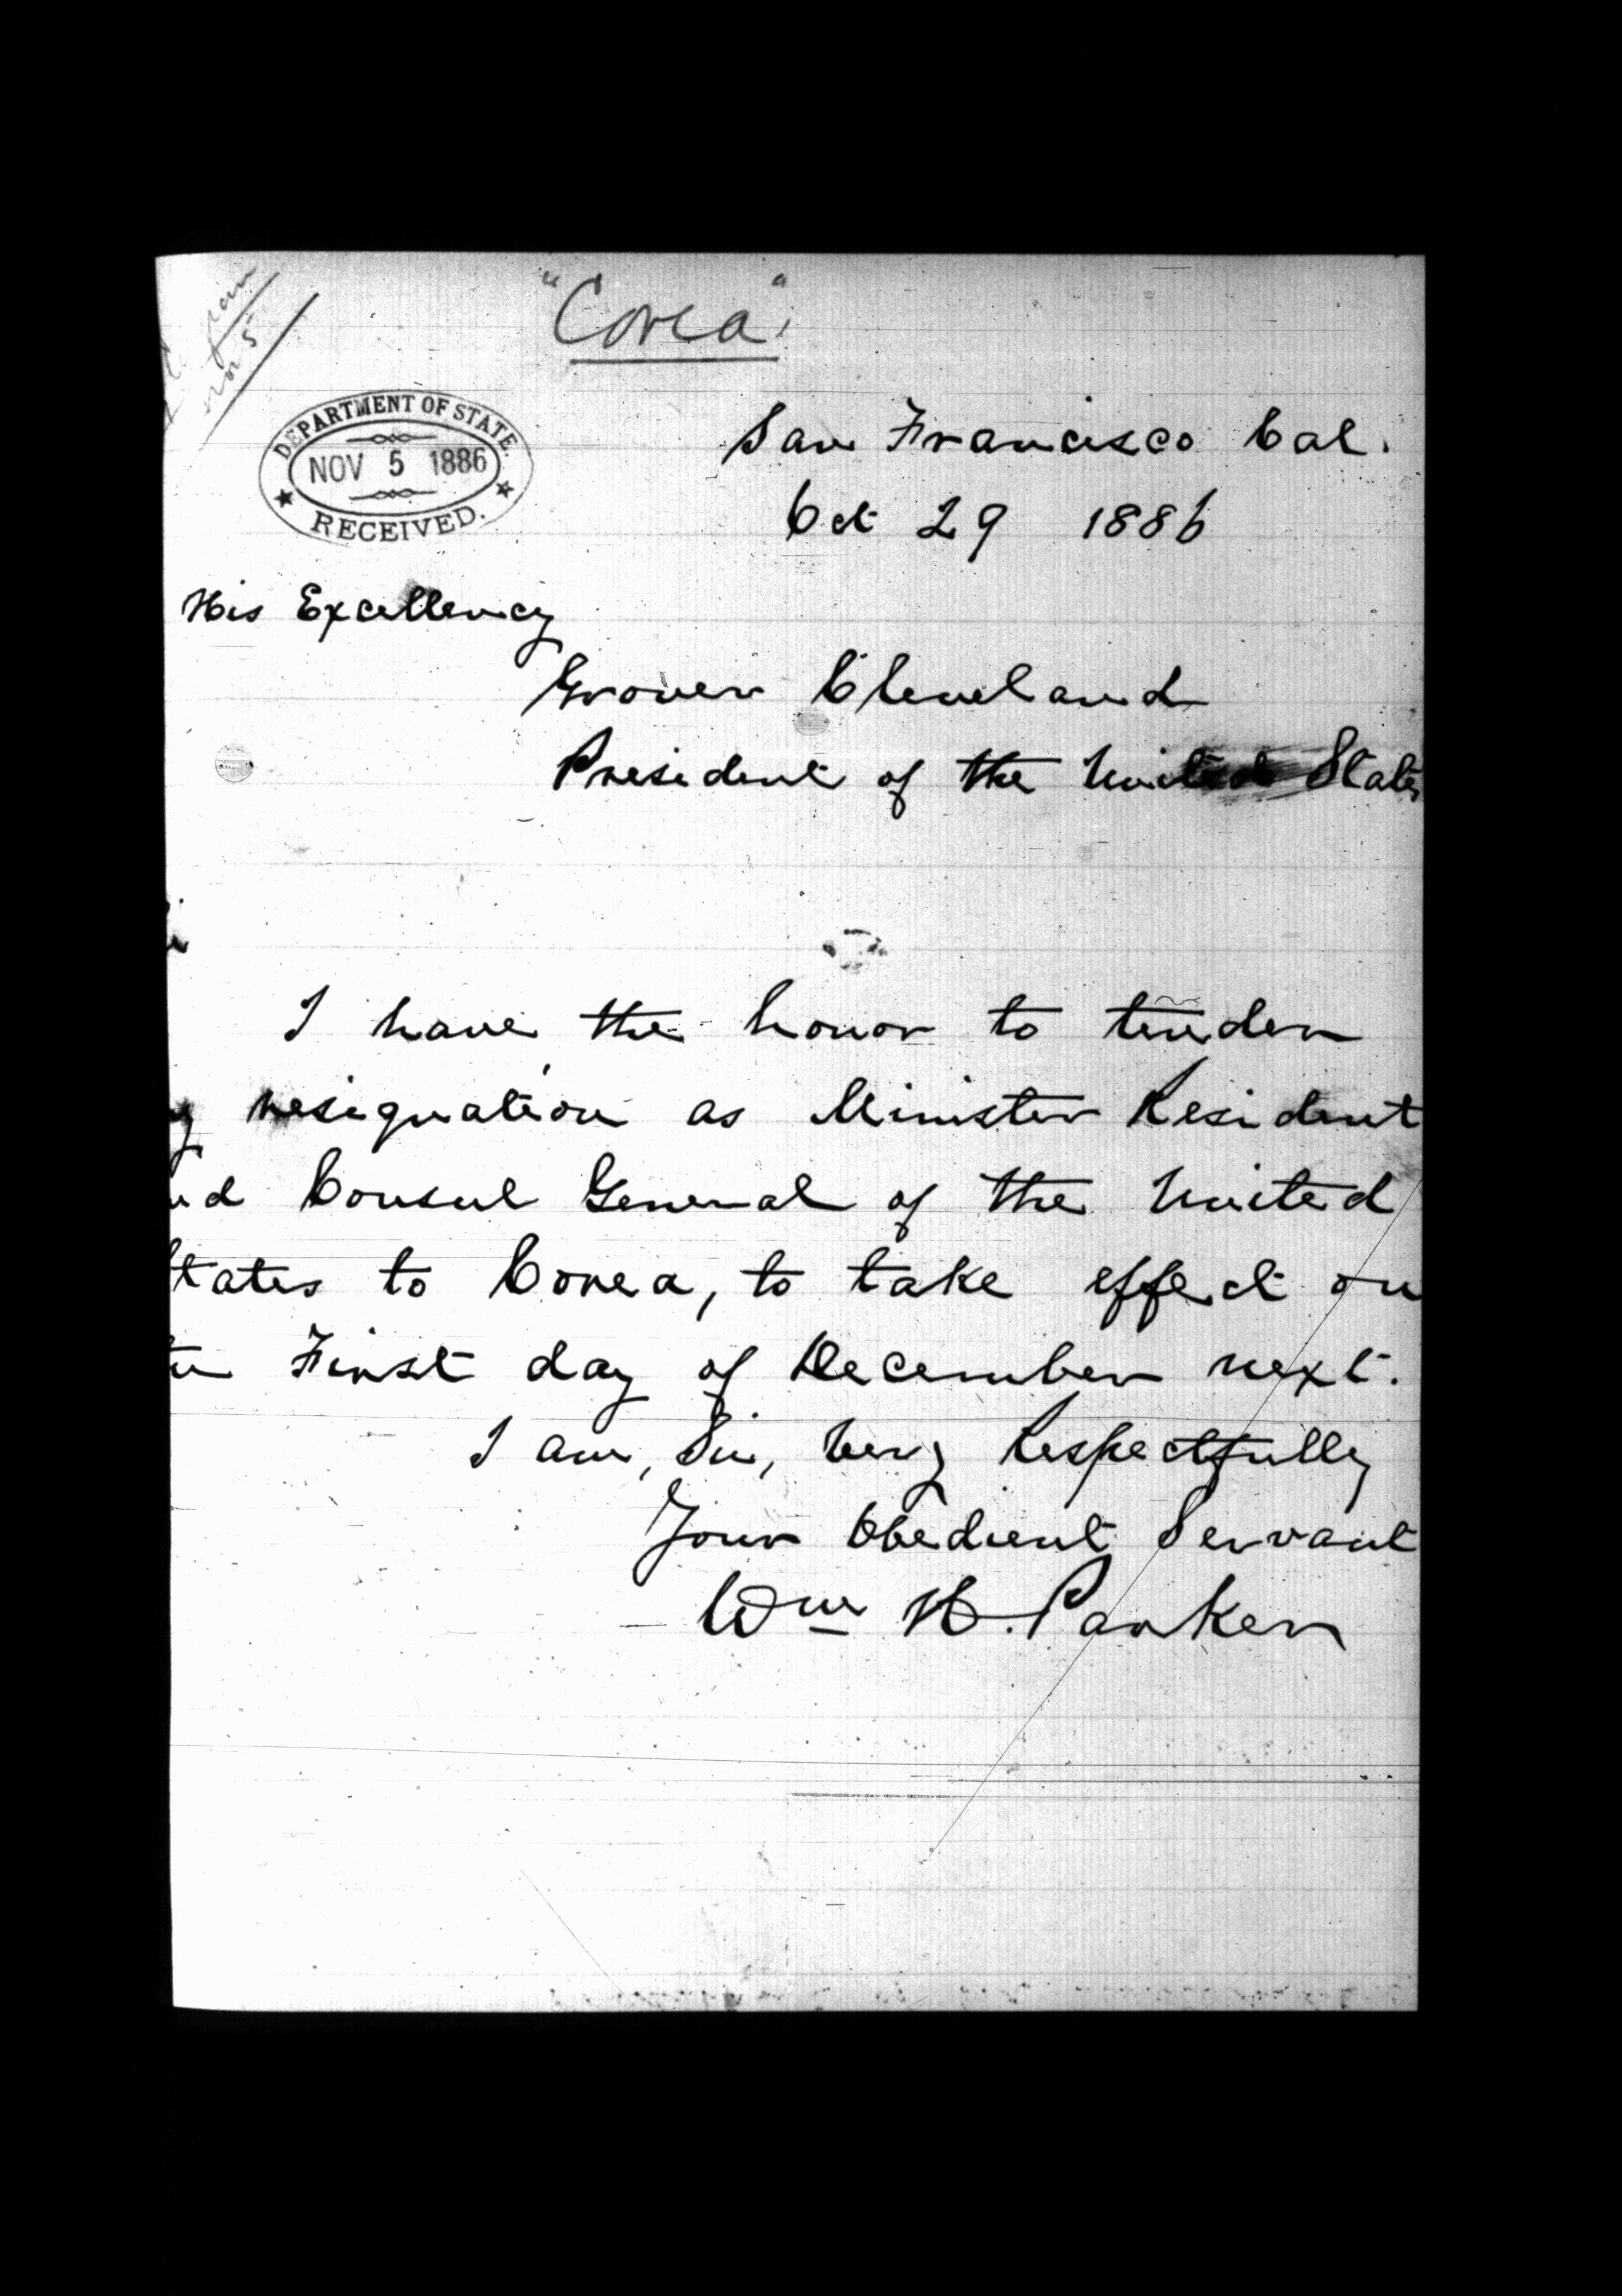 "Corea"
Nov 5
DEPARTMENT OF STATE.
NOV 5 1886
RECEIVED.
San Francisco Cal.
Oct 29 1886
His Excellency
Grover Cleveland
President of the United States
I have the honor to tender
y resignation as Minister Resident
nd Consul General of the United
tates to Corea, to take effect on
First day of December next.
I am, Sir, Very Respectfully
Your Obedient Servant
Wm H. Parker